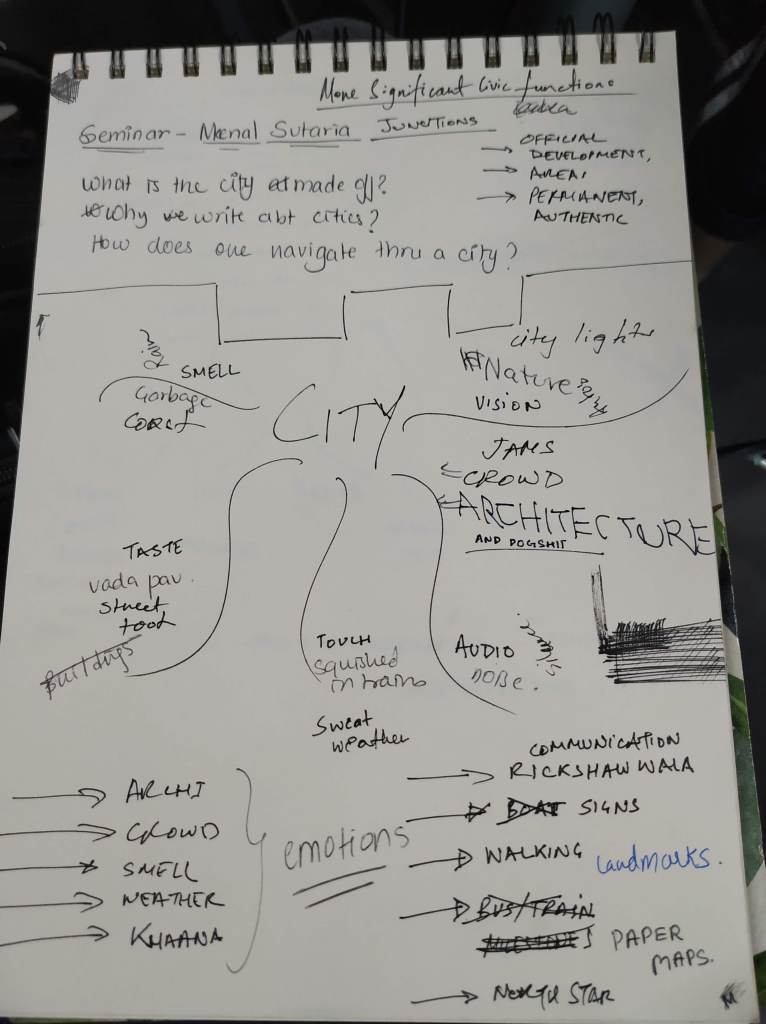 More Significant Civic functions
Seminar - Meenal Sutaria JUNCTIONS
→ OFFICIAL
DEVELOPMENT,
→ AREA,
→ PERMANENT,
AUTHENTIC
What is the city made of?
Why we write abt cities?
How does one navigate thru a city?
SMELL
Garbage
CITY
city lights
Nature
VISION
JAMS
CROWD
ARCHITECTURE
AND DOGSHIT
TASTE
vada pav.
street
food
Buildings
TOUCH
squished
in trains
Sweat
weather
AUDIO
silence.
→ ARCHI
→ CROWD
→ SMELL
→ WEATHER
→ KHAANA
emotions
COMMUNICATION
→ RICKSHAW WALA
→ BOAT SIGNS
→ WALKING Landmarks.
→ BUS/TRAIN
PAPER
MAPS.
→ NORTH STAR